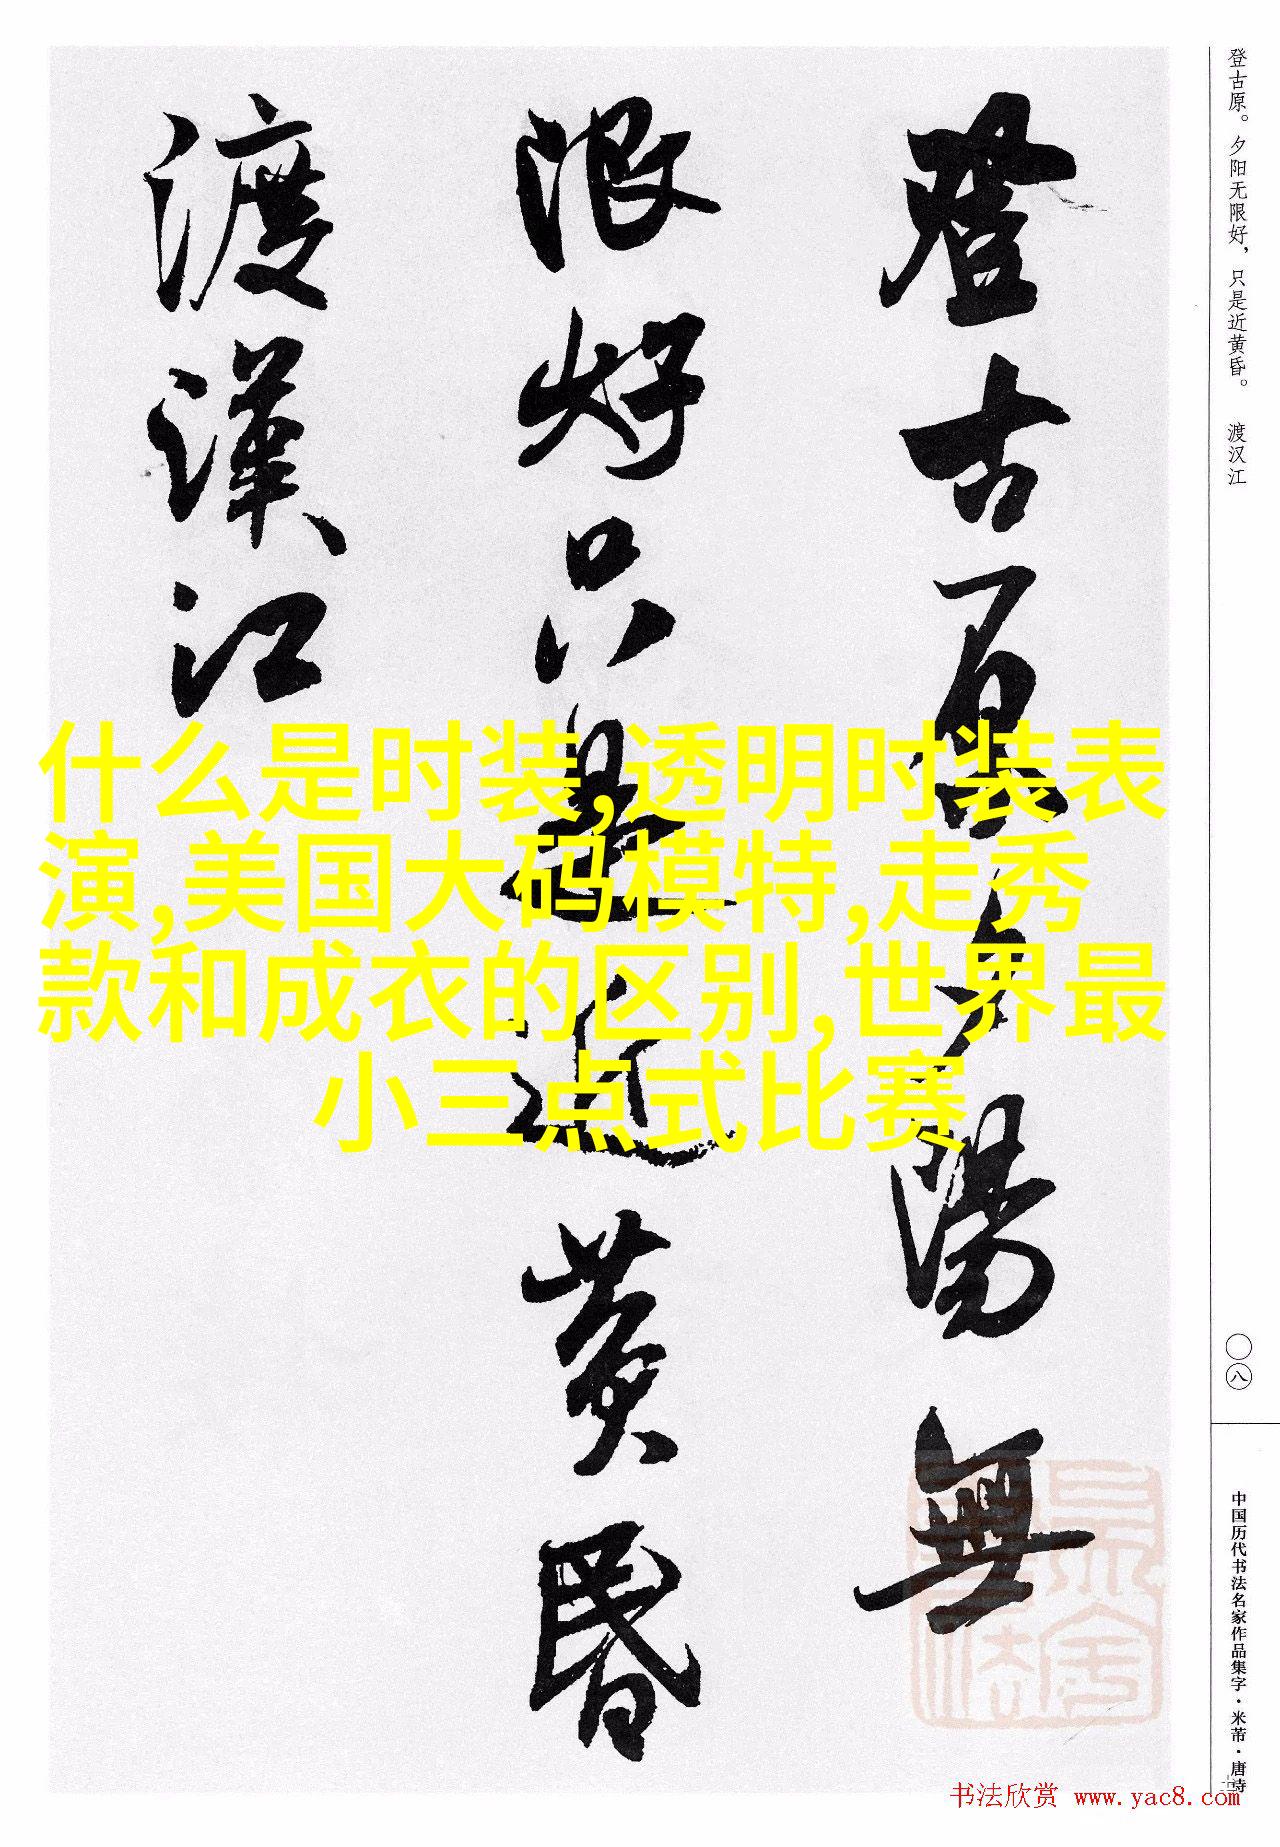 登古原夕陽無
限好只是近黄昏
渡漢江
登古原。夕阳无限好，只是近黄昏。 渡汉江
〇八
中国历代书法名家作品集字·米芾·唐诗
什么是时装,透明时装表
演,美国大码模特,走秀
款和成衣的区别,世界最
小三点式比赛
书法欣赏 www.yac8.com